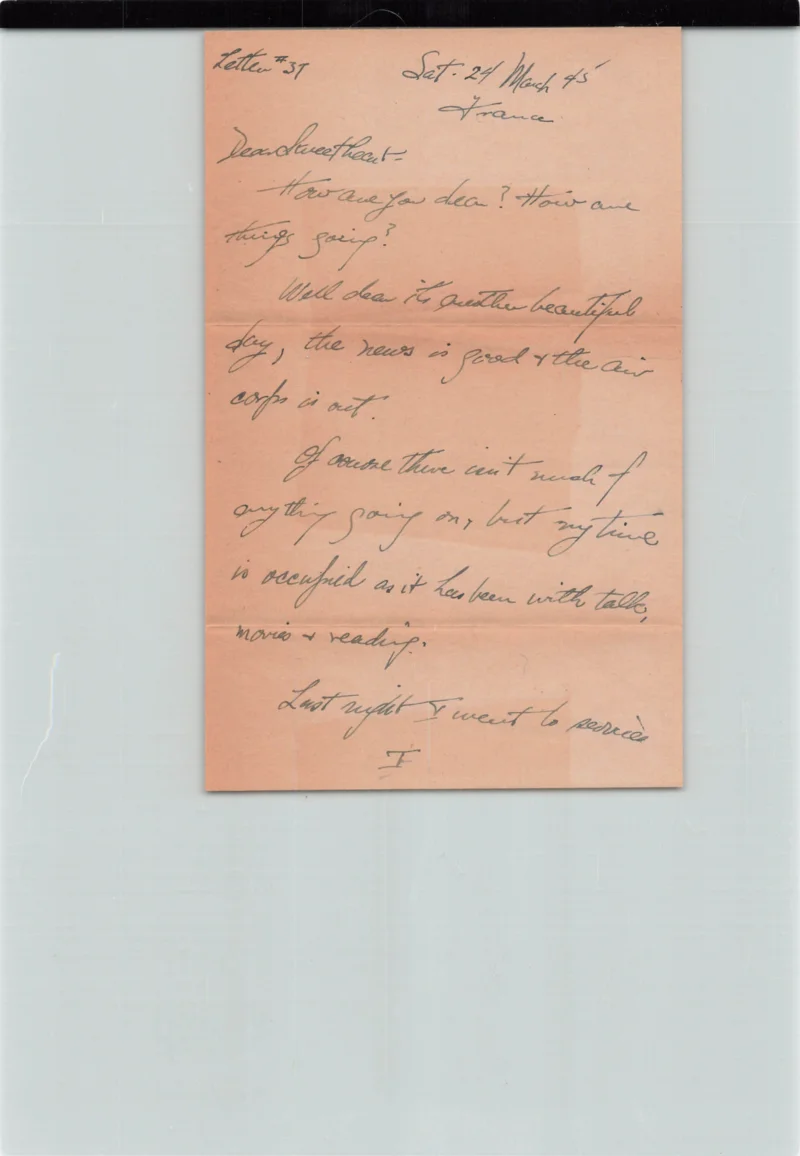 Letter #37
Sat. 24 March 45
France
Dear Sweetheart-
How are you dear? How are
things going?
Well dear its another beautiful
day, the news is good & the air
corps is out.
Of course there isn't much of
anything going on, but my time
is occupied as it has been with talk,
movies & reading.
Last night I went to services
I